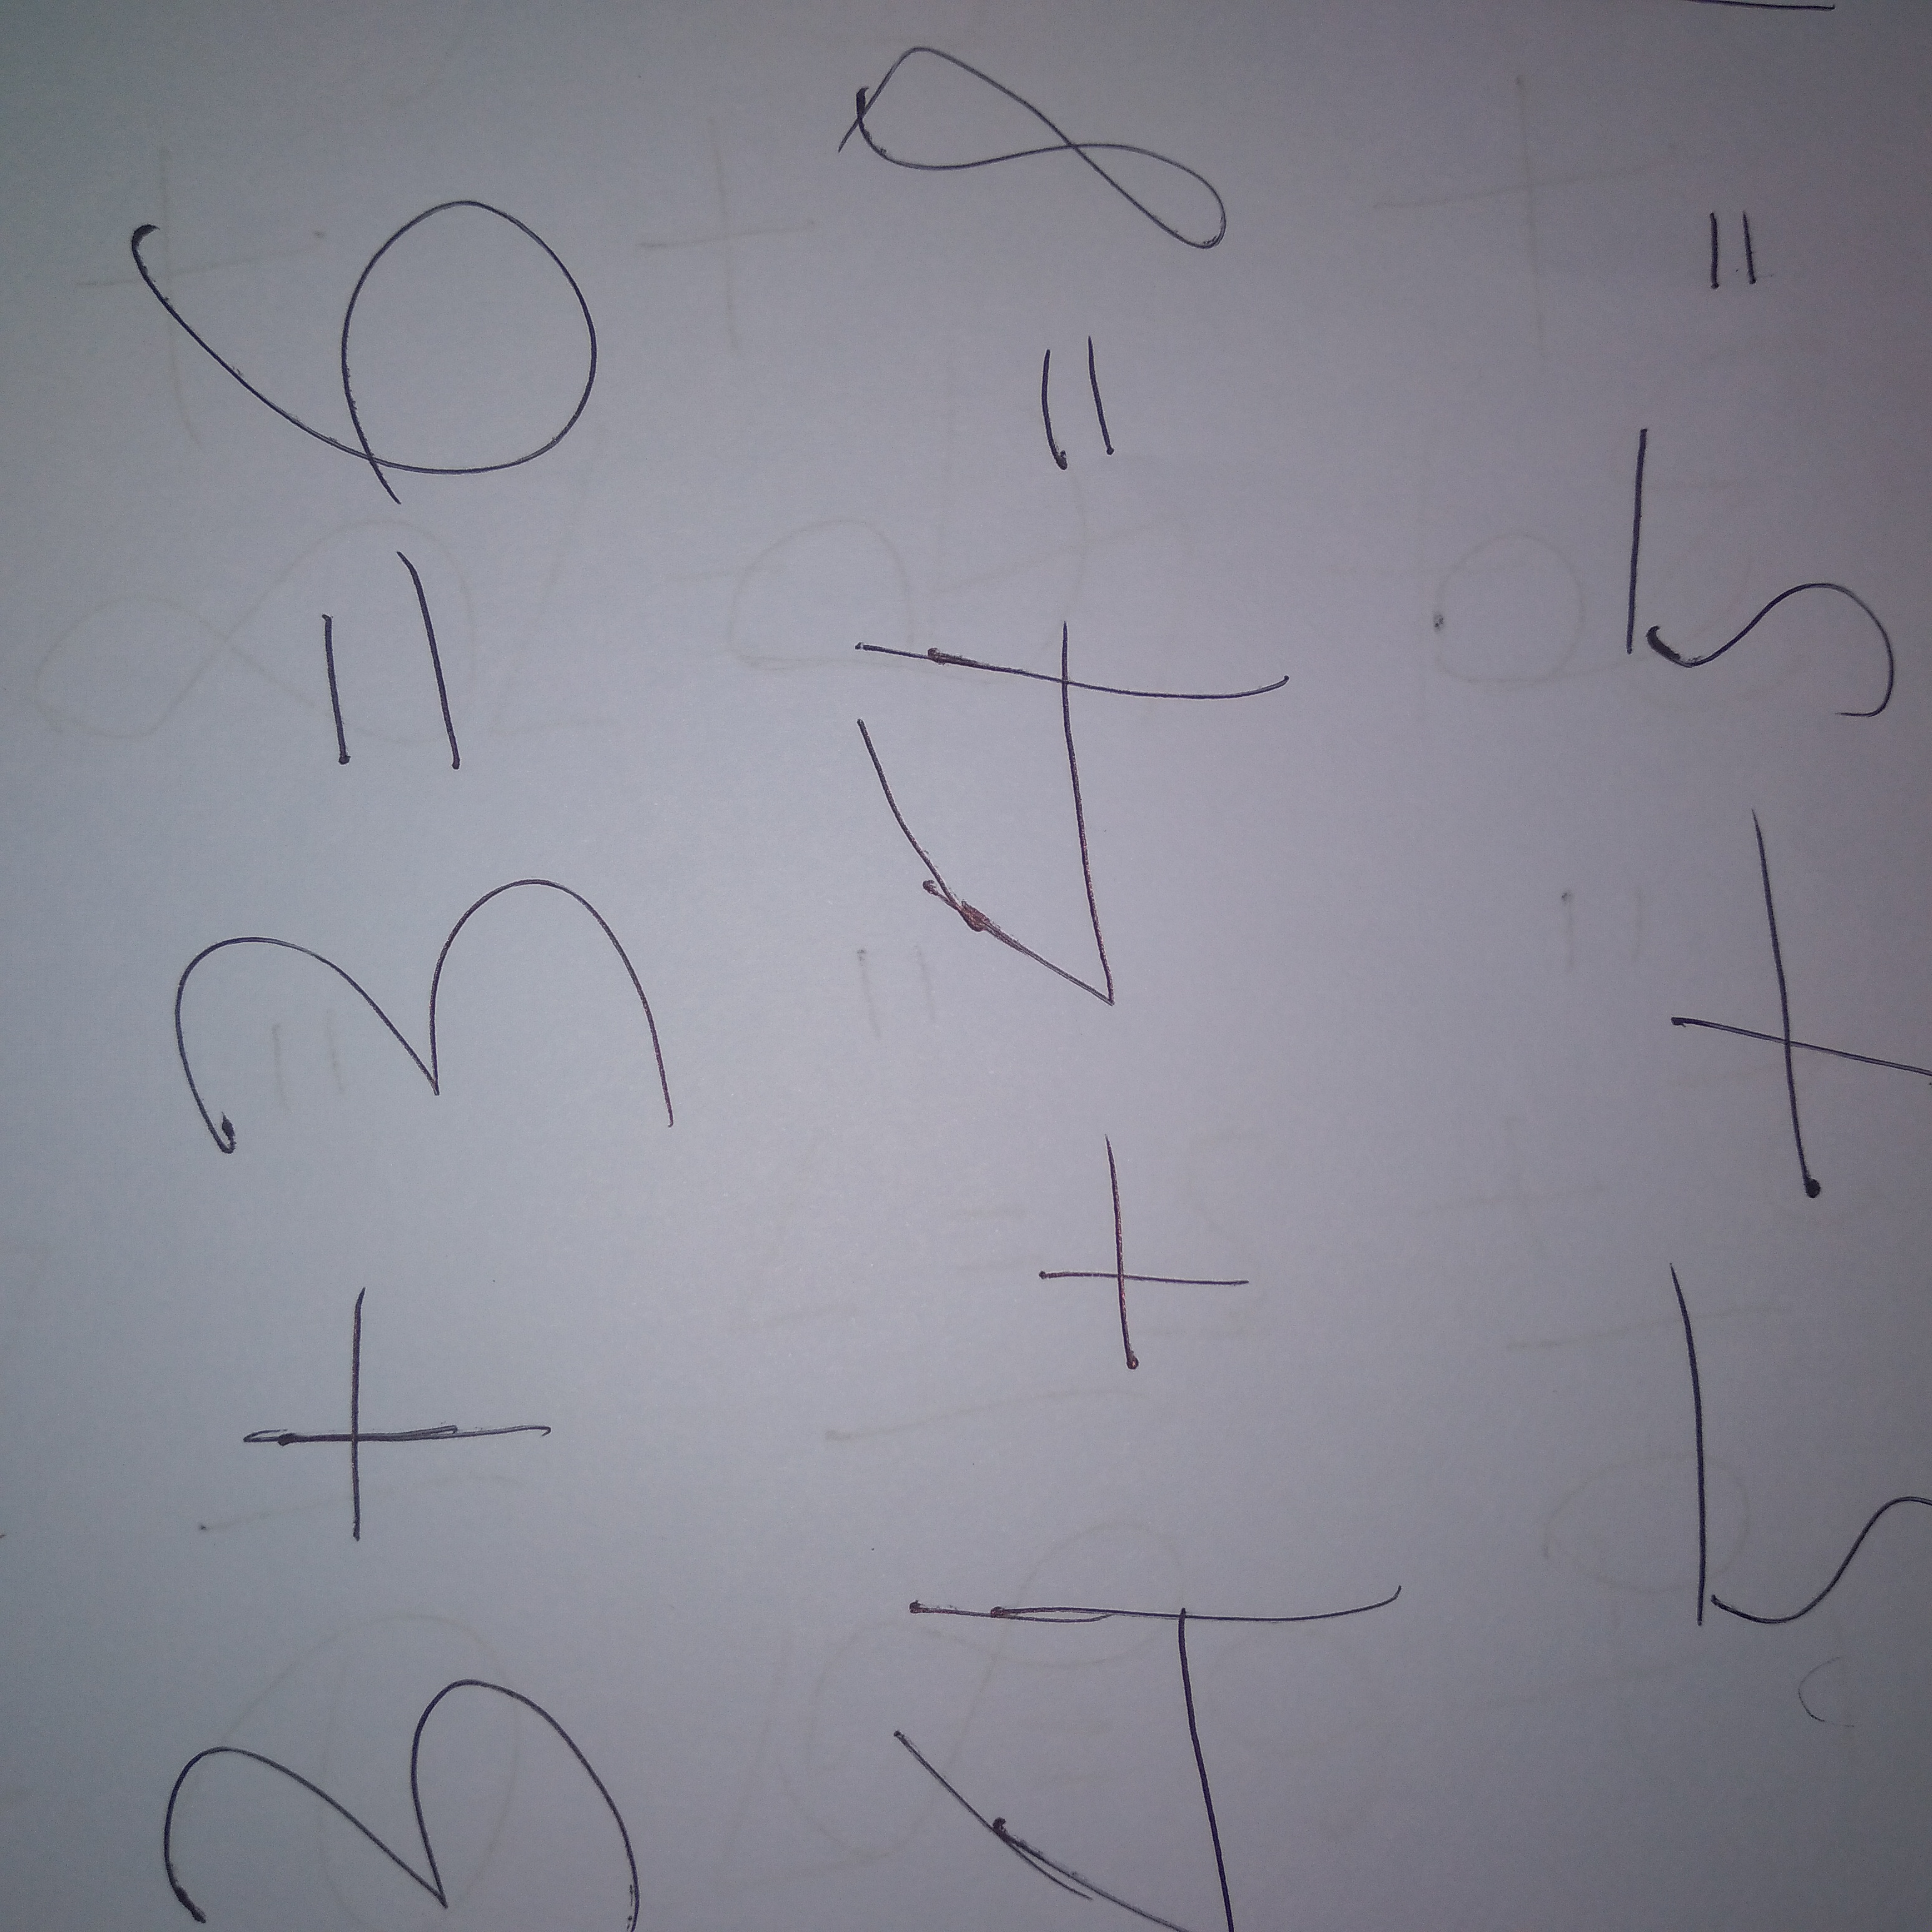 3 + 3 = 6
4 + 4 = 8
5 + 5 = 1